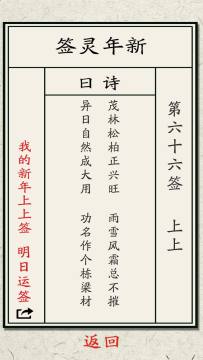 新年灵签
第六十六签 上上
诗曰
茂林松柏正兴旺 雨雪风霜总不摧
异日自然成大用 功名作个栋梁材
我的新年上上签 明日运签
返回